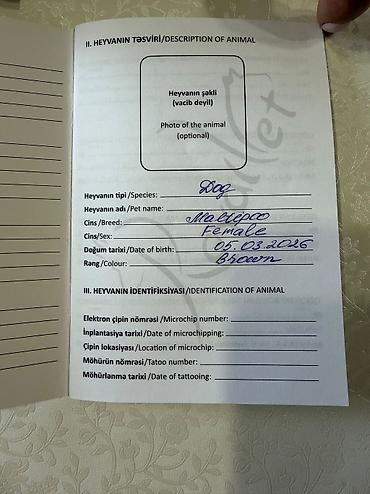 II. HEYVANIN TƏSVİRİ/DESCRIPTION OF ANIMAL
Heyvanın şəkli
(vacib deyil)
Photo of the animal
(optional)
Heyvanın tipi /Species: Dog
Heyvanın adı /Pet name:
Cins /Breed: Maltipoo
Cins/Sex: Female
Doğum tarixi /Date of birth: 05.03.2026
Rəng /Colour: Brown
III. HEYVANIN İDENTİFİKSİYASI /IDENTIFICATION OF ANIMAL
Elektron çipin nömrəsi /Microchip number:
İnplantasiya tarixi /Date of microchipping:
Çipin lokasiyası /Location of microchip:
Möhürün nömrəsi /Tatoo number:
Möhürlənmə tarixi /Date of tattooing: